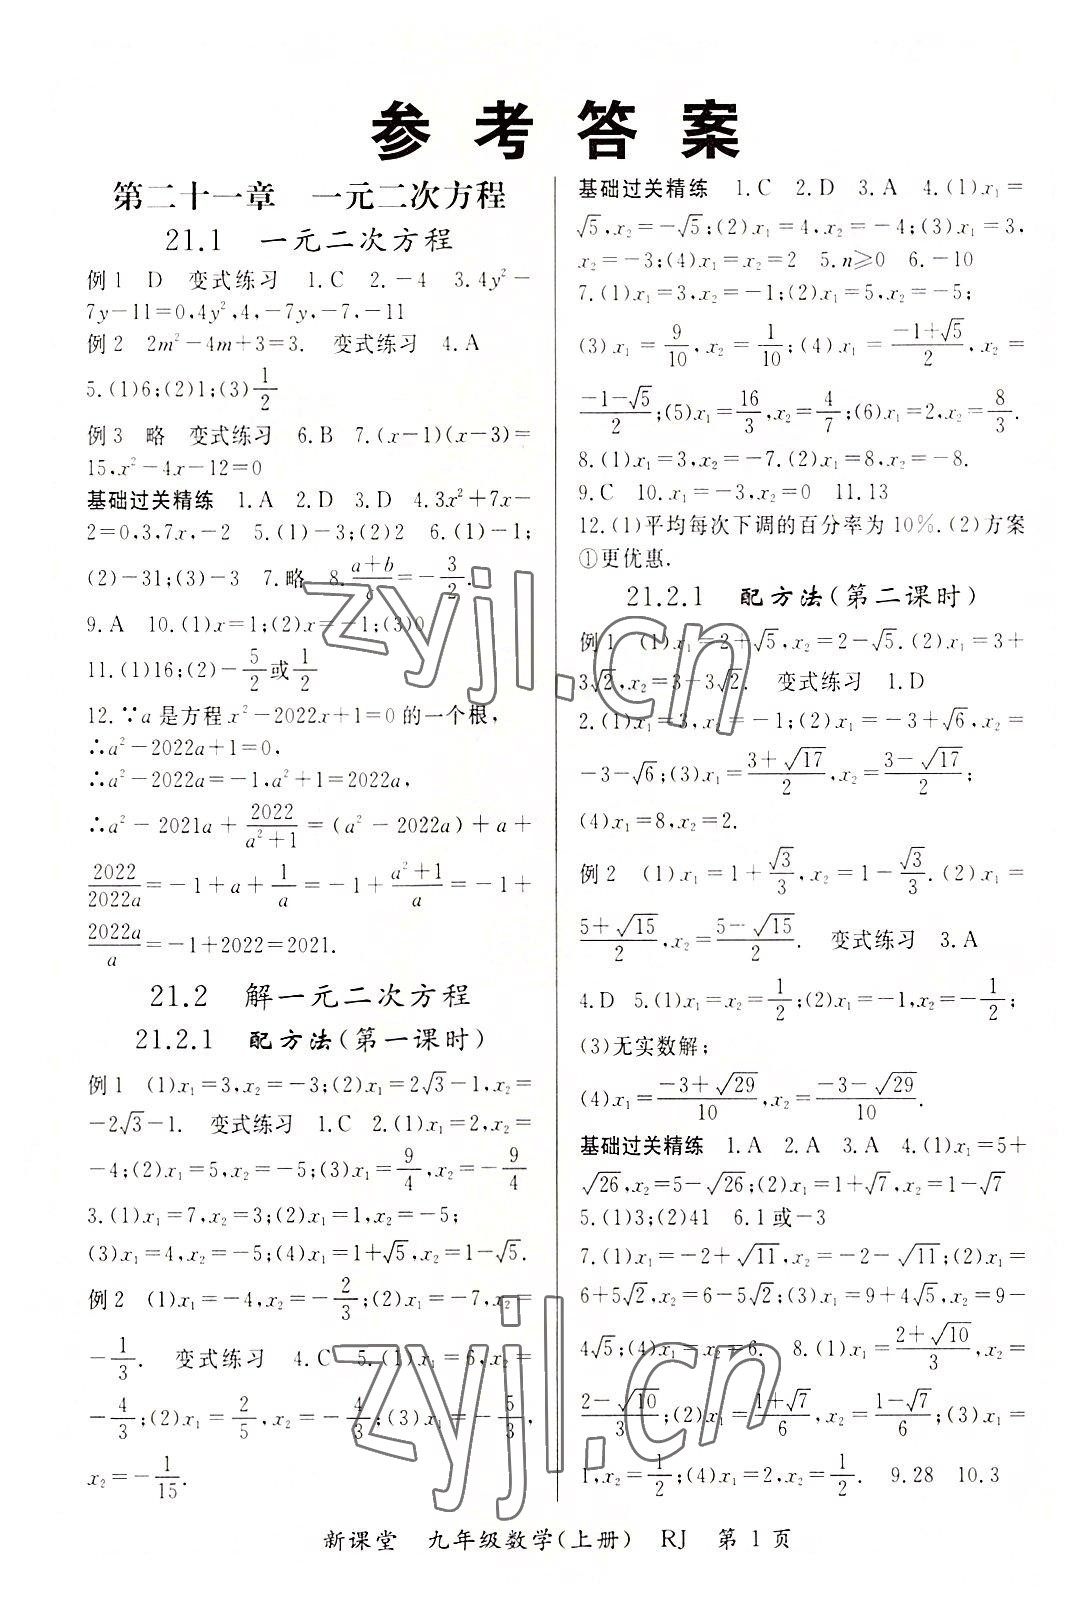 参考答案
第二十一章 一元二次方程
21.1 一元二次方程
例1 D 变式练习 1.C 2.-4 3.4y²-
7y-11=0,4y²,4,-7y,-7,-11
例2 2m²-4m+3=3. 变式练习 4.A
5.(1)6;(2)1;(3)1/2
例3 略 变式练习 6.B 7.(x-1)(x-3)=
15,x²-4x-12=0
基础过关精练 1.A 2.D 3.D 4.3x²+7x-
2=0,3,7x,-2 5.(1)-3;(2)2 6.(1)-1;
(2)-31;(3)-3 7.略 8.(a+b)/c=-3/2.
9.A 10.(1)x=1;(2)x=-1;(3)0
11.(1)16;(2)-5/2或1/2
12.∵a是方程x²-2022x+1=0的一个根,
∴a²-2022a+1=0,
∴a²-2022a=-1,a²+1=2022a,
∴a²-2021a+2022/(a²+1)=(a²-2022a)+a+
2022/2022a=-1+a+1/a=-1+(a²+1)/a=-1+
2022a/a=-1+2022=2021.
21.2 解一元二次方程
21.2.1 配方法(第一课时)
例1 (1)x₁=3,x₂=-3;(2)x₁=2√3-1,x₂=
-2√3-1. 变式练习 1.C 2.(1)x₁=2,x₂=
-4;(2)x₁=5,x₂=-5;(3)x₁=9/4,x₂=-9/4
3.(1)x₁=7,x₂=3;(2)x₁=1,x₂=-5;
(3)x₁=4,x₂=-5;(4)x₁=1+√5,x₂=1-√5.
例2 (1)x₁=-4,x₂=-2/3;(2)x₁=-7,x₂=
-1/3. 变式练习 4.C 5.(1)x₁=6,x₂=
-4/3;(2)x₁=2/5,x₂=-4/3;(3)x₁=-5/3,
x₂=-1/15.
基础过关精练 1.C 2.D 3.A 4.(1)x₁=
√5,x₂=-√5;(2)x₁=4,x₂=-4;(3)x₁=3,
x₂=-3;(4)x₁=x₂=2 5.n≥0 6.-10
7.(1)x₁=3,x₂=-1;(2)x₁=5,x₂=-5;
(3)x₁=9/10,x₂=1/10;(4)x₁=(-1+√5)/2,x₂=
(-1-√5)/2;(5)x₁=16/3,x₂=4/7;(6)x₁=2,x₂=8/3.
8.(1)x₁=3,x₂=-7.(2)x₁=8,x₂=-8.
9.C 10.x₁=-3,x₂=0 11.13
12.(1)平均每次下调的百分率为10%.(2)方案
①更优惠.
21.2.1 配方法(第二课时)
例1 (1)x₁=2+√5,x₂=2-√5.(2)x₁=3+
3√2,x₂=3-3√2. 变式练习 1.D
2.(1)x₁=3,x₂=-1;(2)x₁=-3+√6,x₂=
-3-√6;(3)x₁=(3+√17)/2,x₂=(3-√17)/2;
(4)x₁=8,x₂=2.
例2 (1)x₁=1+√3/3,x₂=1-√3/3.(2)x₁=
(5+√15)/2,x₂=(5-√15)/2. 变式练习 3.A
4.D 5.(1)x₁=x₂=1/2;(2)x₁=-1,x₂=-1/2;
(3)无实数解;
(4)x₁=(-3+√29)/10,x₂=(-3-√29)/10.
基础过关精练 1.A 2.A 3.A 4.(1)x₁=5+
√26,x₂=5-√26;(2)x₁=1+√7,x₂=1-√7
5.(1)3;(2)41 6.1或-3
7.(1)x₁=-2+√11,x₂=-2-√11;(2)x₁=
6+5√2,x₂=6-5√2;(3)x₁=9+4√5,x₂=9-
4√5;(4)x₁=x₂=6. 8.(1)x₁=(2+√10)/3,x₂=
(2-√10)/3;(2)x₁=(1+√7)/6,x₂=(1-√7)/6;(3)x₁=
1,x₂=1/2;(4)x₁=2,x₂=1/2. 9.28 10.3
新课堂 九年级数学(上册) RJ 第1页
zyjl.cn
zyjl.cn